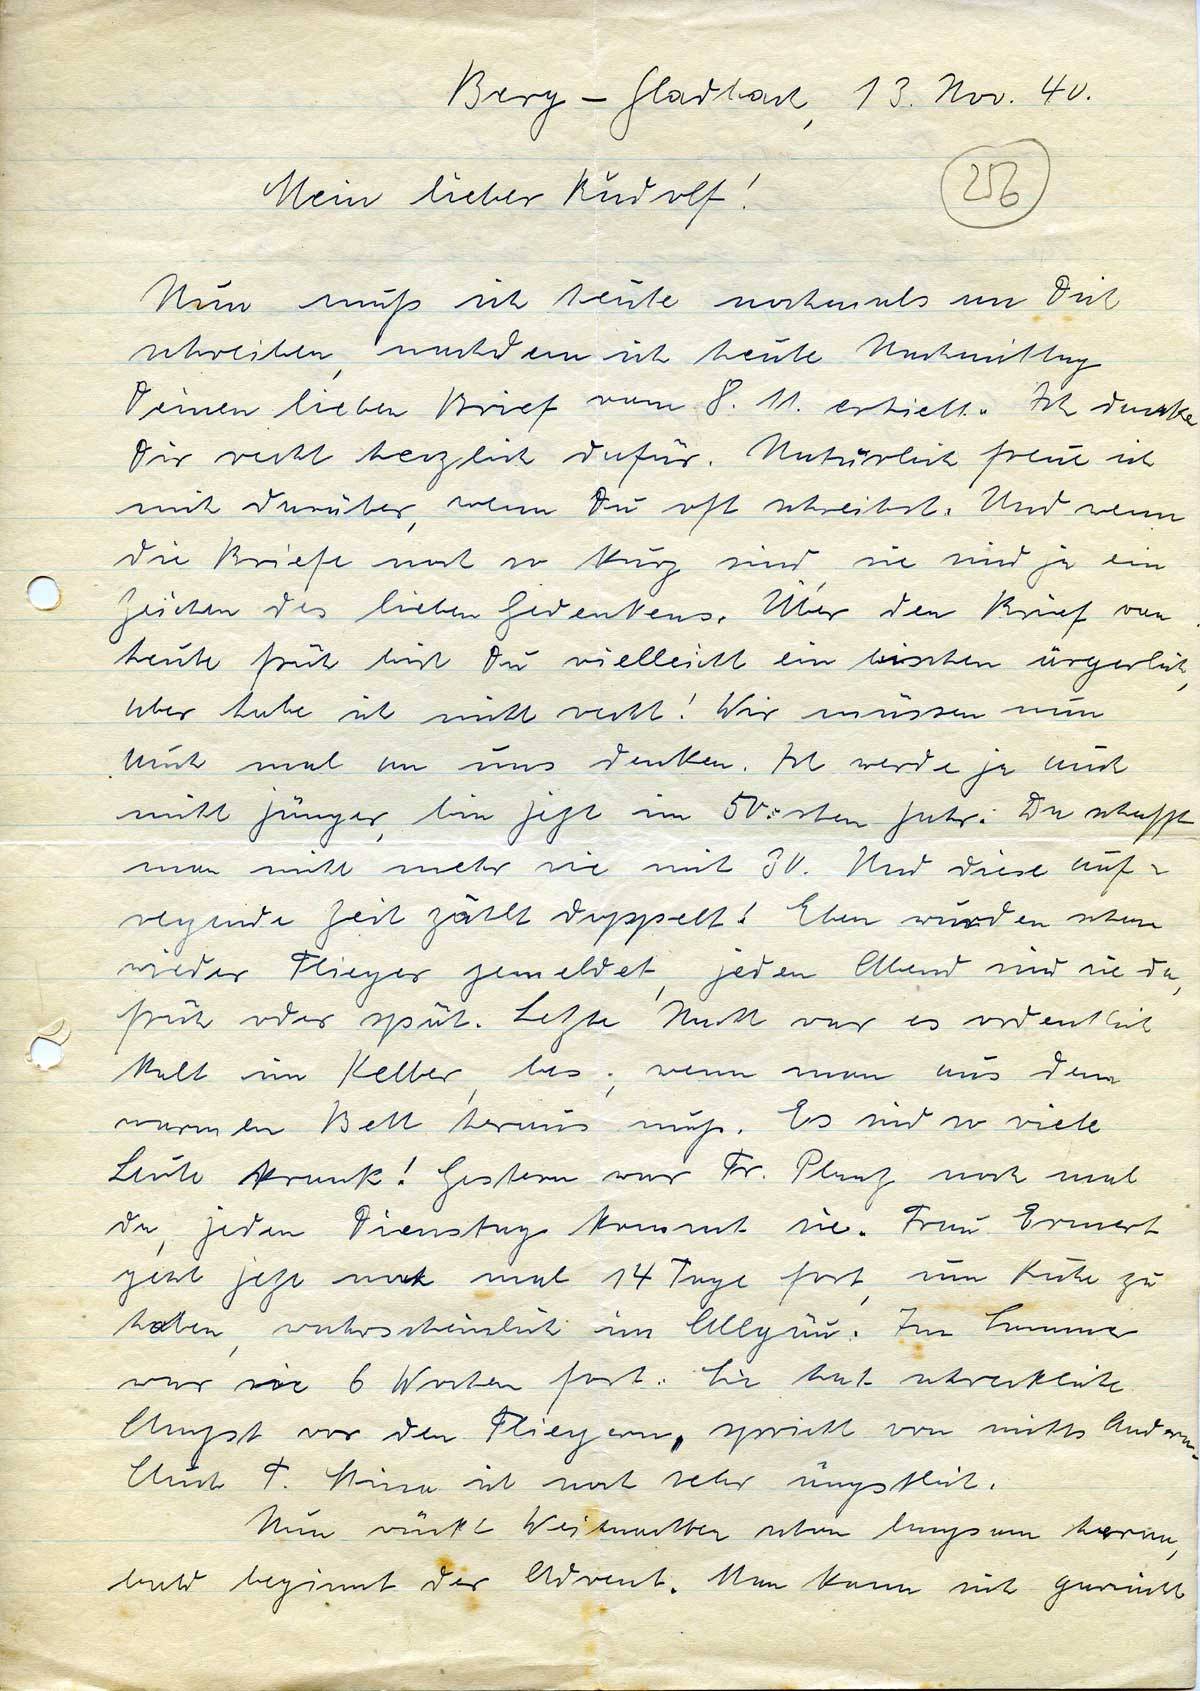 Berg-Gladbach, 13. Nov. 40.
256
Mein lieber Rudolf!
Nun muß ich heute nochmals an Dich
schreiben, nachdem ich heute Nachmittag
Deinen lieben Brief vom 8. 11. erhielt. Ich danke
Dir recht herzlich dafür. Natürlich freue ich
mich darüber, wenn Du oft schreibst. Und wenn
die Briefe noch so kurz sind, sie sind ja ein
Zeichen des lieben Gedenkens. Über den Brief von
heute früh bist Du vielleicht ein bischen ärgerlich,
aber habe ich nicht recht! Wir müssen nun
auch mal an uns denken. Ich werde ja auch
nicht jünger, bin jetzt im 50:sten Jahr. Da schafft
man nicht mehr wie mit 30. Und diese auf-
regende Zeit zählt doppelt! Eben wurden schon
wieder Flieger gemeldet, jeden Abend sind sie da,
früh oder spät. Letzte Nacht war es ordentlich
kalt im Keller, bes., wenn man aus dem
warmen Bett heraus muß. Es sind so viele
Leute krank! Gestern war Fr. Plaatz noch mal
da, jeden Dienstag kommt sie. Frau Ermert
geht jetzt noch mal 14 Tage fort, um Ruhe zu
haben, wahrscheinlich im Allgäu. Im Sommer
war sie 6 Wochen fort. Sie hat schreckliche
Angst vor den Fliegern, spricht von nichts Anderm.
Auch T. ist noch sehr ängstlich.
Nun rückt Weihnachten schon langsam heran,
bald beginnt der Advent. Man kann sich garnicht